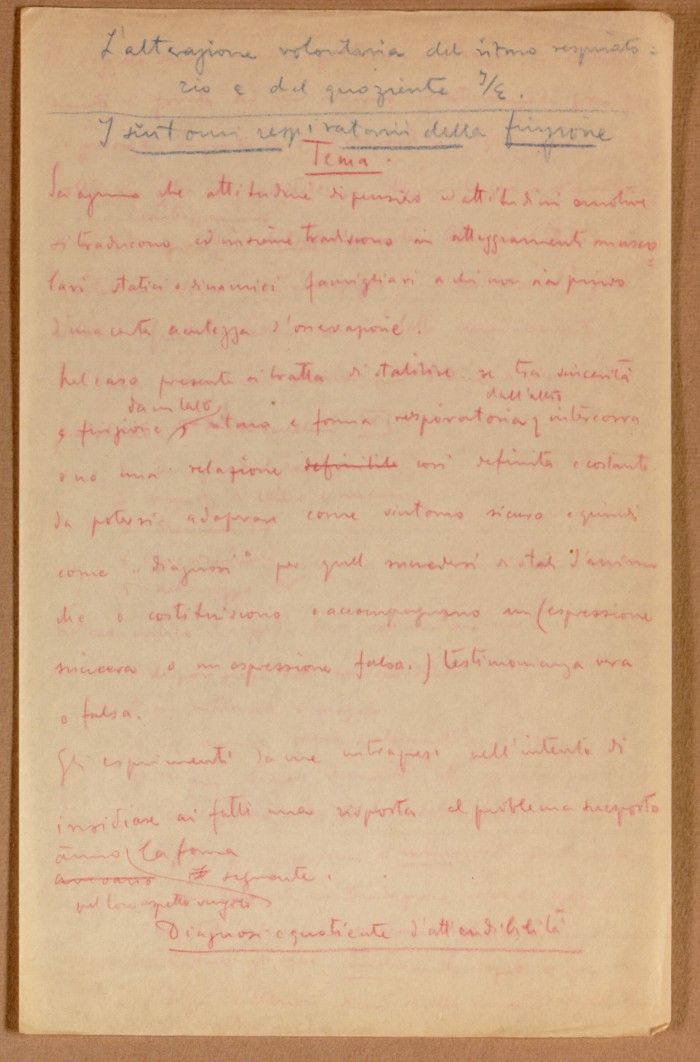 L'alterazione volontaria del ritmo respirato=
rio e del quoziente I/E.
I sintomi respiratori della finzione
Tema.
Sappiamo che attitudini di pensiero ed attitudini emotive
si traducono ed insieme tradiscono in atteggiamenti musco=
lari statici e dinamici famigliari a chi non sia privo
d'una certa acutezza d'osservazione.
Nel caso presente si tratta di stabilire se tra sincerità
da un lato dall'altro
e finzione, ritmo e forma respiratoria, intercorra
o no una relazione definibile così definita e costante
da potersi adoprare come sintomo sicuro e quindi
come "diagnosi" per quel succedersi di stati d'animo
che o costituiscono o accompagnano un (espressione
sincera o un espressione falsa.) testimonianza vera
o falsa.
Gli esperimenti da me intrapresi nell'intento di
insidiare ai fatti una risposta al problema suesposto
anno la forma
avevano seguente.
nel loro aspetto
Diagnosi e quotiente d'attendibilità